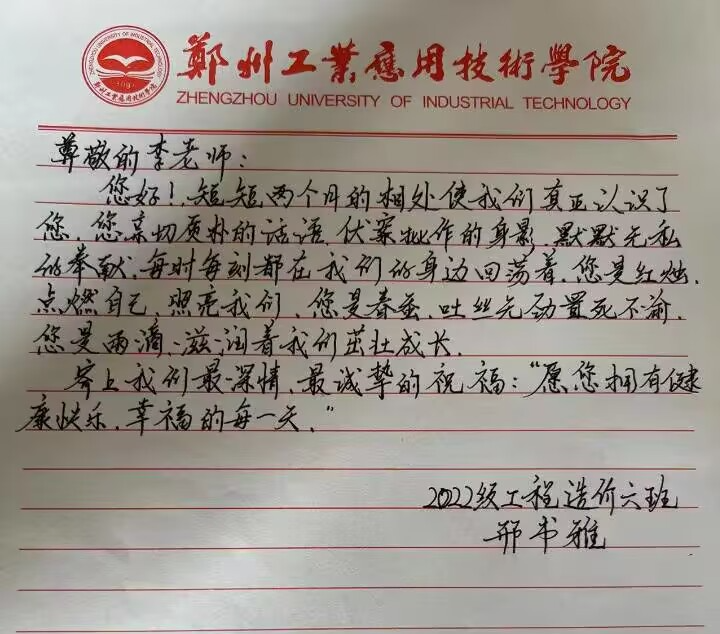 鄭州工業應用技術學院
ZHENGZHOU UNIVERSITY OF INDUSTRIAL TECHNOLOGY
尊敬的李老师:
您好!短短两个月的相处使我们真正认识了
您,您亲切质朴的话语,伏案批作的身影,默默无私
的奉献,每时每刻都在我们的身边回荡着,您是红烛,
点燃自己,照亮我们,您是春蚕,吐丝无劲置死不渝,
您是雨滴,滋润着我们茁壮成长.
寄上我们最深情、最诚挚的祝福:“愿您拥有健
康快乐,幸福的每一天.”
2022级工程造价六班
邢书雅